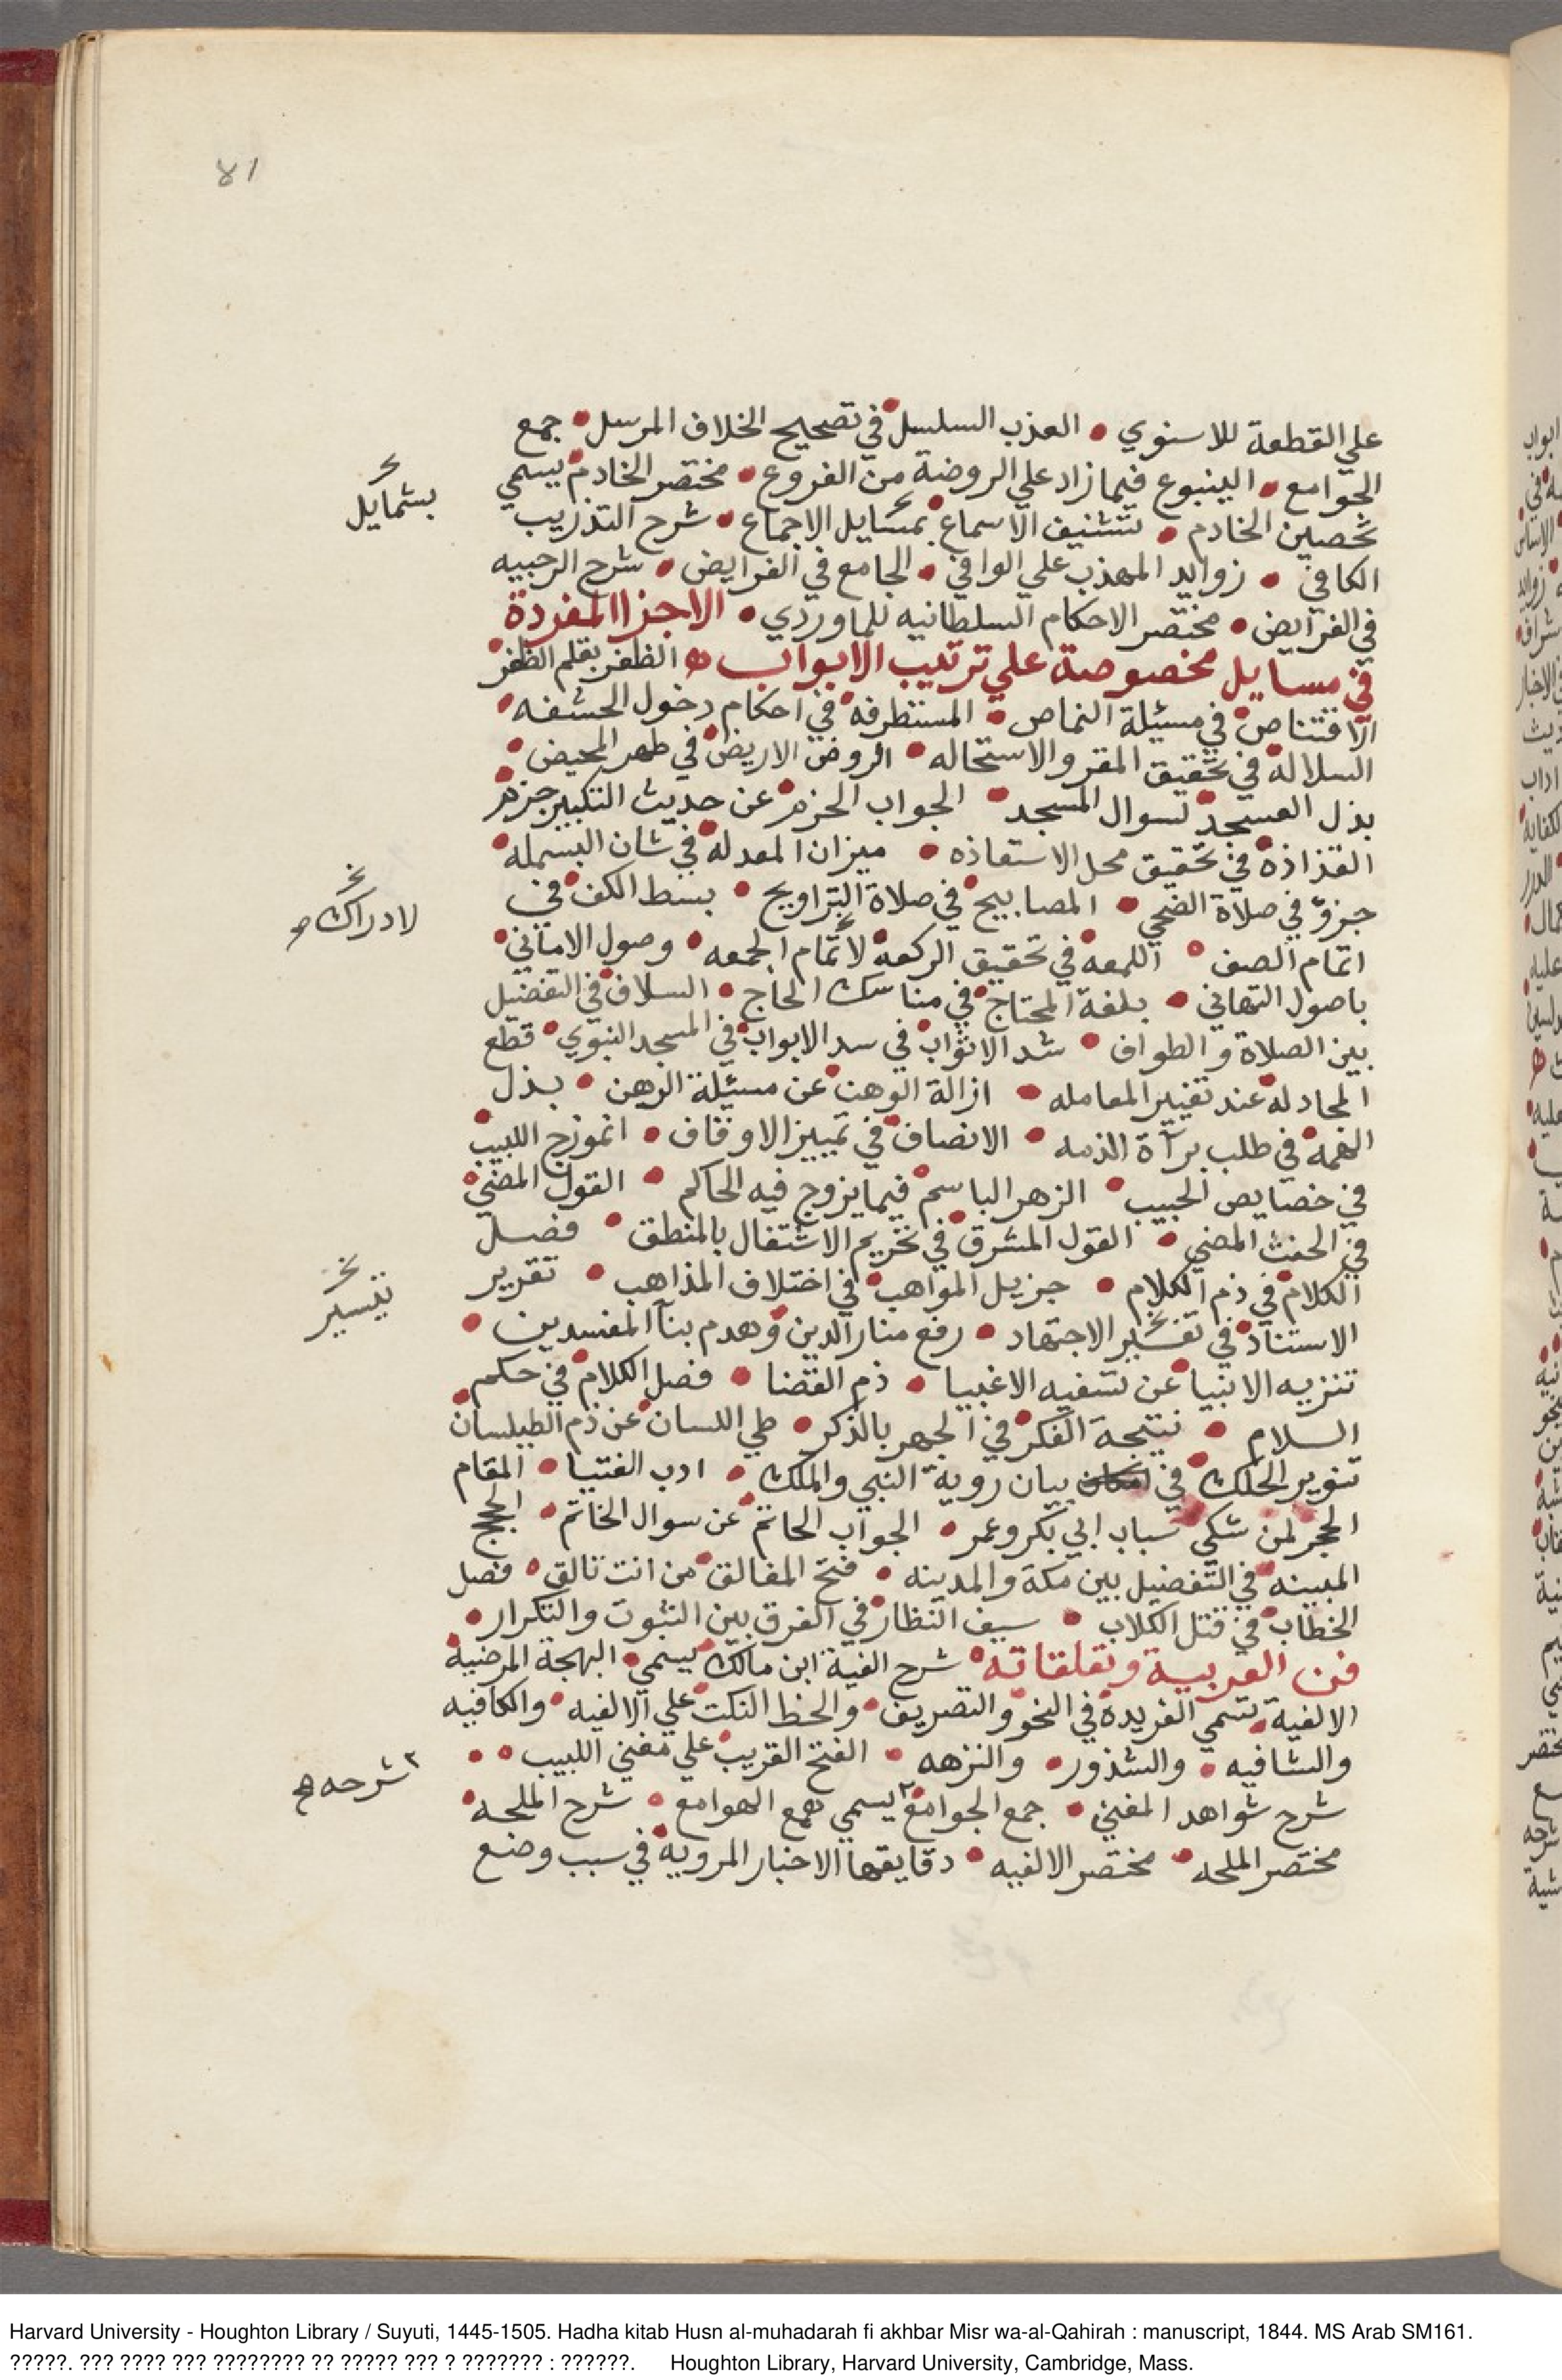 ٨١
علي القطعة للاسنوي • العذب السلسل في تصحيح الخلاف المرسل • جمع
الجوامع • الينبوع فيما زاد علي الروضة من الفروع • مختصر الخادم يسمي
تحصين الخادم • تشنيف الاسماع بمسايل الاجماع • شرح التدريب
بشمايل
الكافي • زوايد المهذب علي الوافي • الجامع في الفرايض • شرح الرحبيه
في الفرايض • مختصر الاحكام السلطانيه للماوردي • الاجزا المفردة
في مسايل مخصوصة علي ترتيب الابواب ه الظفر بقلم الظفر
الاقتناص في مسيئلة النماص • المستظرفه في احكام دخول الحشفه •
السلاله في تحقيق المقر والاستحاله • الروض الاريض في طهر المحيض •
بذل العسجد لسوال المسجد • الجواب الحزم عن حديث التكبير جزم
القذاذه في تحقيق محل الاستعاذه • ميزان المعدله في شان البسمله •
جزؤ في صلاة الضحي • المصابيح في صلاة التراويح • بسط الكف في
لادراك
اتمام الصف • اللمعه في تحقيق الركعه لاتمام الجمعه • وصول الاماني •
باصول التهاني • بلغة المحتاج في مناسك الحاج • السلاف في التفضيل
بين الصلاة والطواف • شد الاثواب في سد الابواب في المسجد النبوي • قطع
المجادله عند تغيير المعامله • ازالة الوهن عن مسيئلة الرهن • بذل
الهمه في طلب برآة الذمه • الانصاف في تمييز الاوقاف • انموزج اللبيب
في خصايص الحبيب • الزهر الباسم فيما يزوج فيه الحاكم • القول المضي
في الحنث المضي • القول المشرق في تحريم الاشتغال بالمنطق • فصل
الكلام في ذم الكلام • جزيل المواهب في اختلاف المذاهب • تقرير
الاستناد في تفسير الاجتهاد • رفع منار الدين وهدم بنآ المفسدين •
تيسير
تنزيه الانبيا عن تسفيه الاغبيا • ذم القضا • فصل الكلام في حكم
السلام • نتيجة الفكر في الجهر بالذكر • طي اللسان عن ذم الطيلسان
تنوير الحلك في امكان بيان روية النبي والملك • ادب الفتيا • المقام
الحجر لمن شكي سباب ابي بكر وعمر • الجواب الحاتم عن سوال الخاتم • الحجج
المبينه في التفضيل بين مكة والمدينه • فتح المغالق من انت تالق • فصل
الخطاب في قتل الكلاب • سيف النظار في الفرق بين الثبوت والتكرار •
فن العربية وتعلقاته • شرح الفية ابن مالك يسمي • البهجة المرضية
الالفية تسمي الفريدة في النحو والتصريف • والخط النكت علي الالفيه • والكافيه
والشافيه • والشذور • والنزهه • الفتح القريب علي مغني اللبيب • •
شرح شواهد المغني • جمع الجوامع ٢ يسمي همع الهوامع • شرح الملحه •
٢ شرحه
مختصر الملحه • مختصر الالفيه • دقايقها الاخبار المروية في سبب وضع
Harvard University - Houghton Library / Suyuti, 1445-1505. Hadha kitab Husn al-muhadarah fi akhbar Misr wa-al-Qahirah : manuscript, 1844. MS Arab SM161.
?????. ??? ???? ??? ???????? ?? ????? ??? ? ??????? : ??????. Houghton Library, Harvard University, Cambridge, Mass.